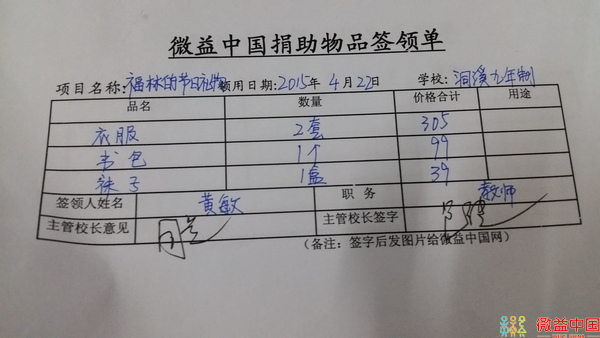 微益中国捐助物品签领单
项目名称:福林的节日礼物 领用日期:2015年4月22日 学校:洞溪九年制
品名 数量 价格合计 用途
衣服 2套 305
书包 1个 99
袜子 1盒 39
签领人姓名 黄敏 职务 教师
主管校长意见 同意 主管校长签字
(备注：签字后发图片给微益中国网)
微益中国